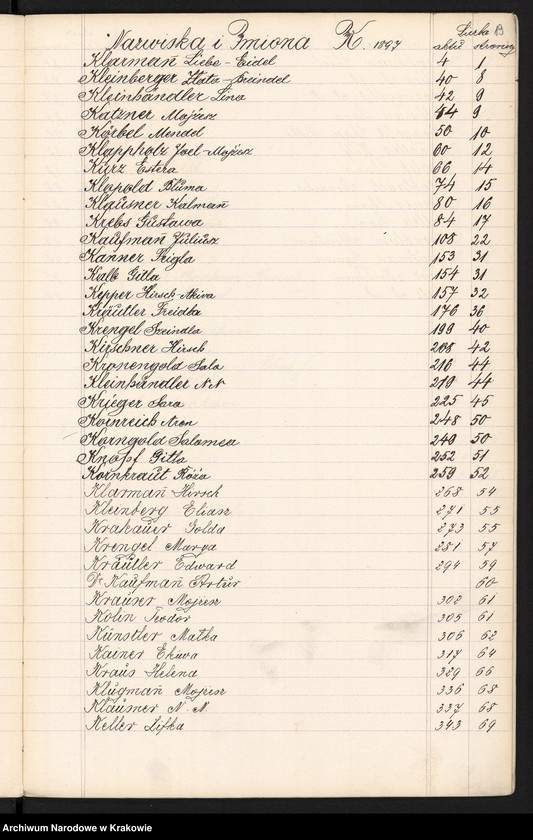 Nazwiska i Imiona K. 1897 Liczba aktu stronicy
Klarmañ Liebe-Eidel 4 1
Kleinberger Złata-Breindel 40 8
Kleinhändler Lina 42 9
Katzner Mojżesz 44 9
Körbel Mendel 50 10
Klappholz Joel-Mojżesz 60 12
Kurz Estera 66 14
Klopold Bluma 74 15
Klausner Kalmañ 80 16
Krebs Gustawa 84 17
Kaufmañ Juliusz 108 22
Kanner Feigla 153 31
Kalb Gitla 154 31
Kepper Hirsch-Akiva 157 32
Kräutler Freidka 176 36
Krengel Szeindla 199 40
Kirschner Hirsch 208 42
Kronengold Sala 216 44
Kleinhändler N.N 219 44
Krieger Sara 225 45
Kornreich Aron 248 50
Korngold Salomea 249 50
Knopf Gitla 252 51
Kornkraut Róża 259 52
Klarmañ Hirsch 268 54
Kleinberg Eliasz 271 55
Krakauer Golda 273 55
Krengel Marya 281 57
Kräutler Edward 294 59
Dr Kaufmañ Artur 60
Krauser Mojżesz 302 61
Kolin Teodor 305 61
Künstler Matka 306 62
Kainer 317 64
Kraus Helena 329 66
Klugmañ Mojżesz 336 68
Klausner N. N. 337 68
Keller Lifka 343 69
Archiwum Narodowe w Krakowie